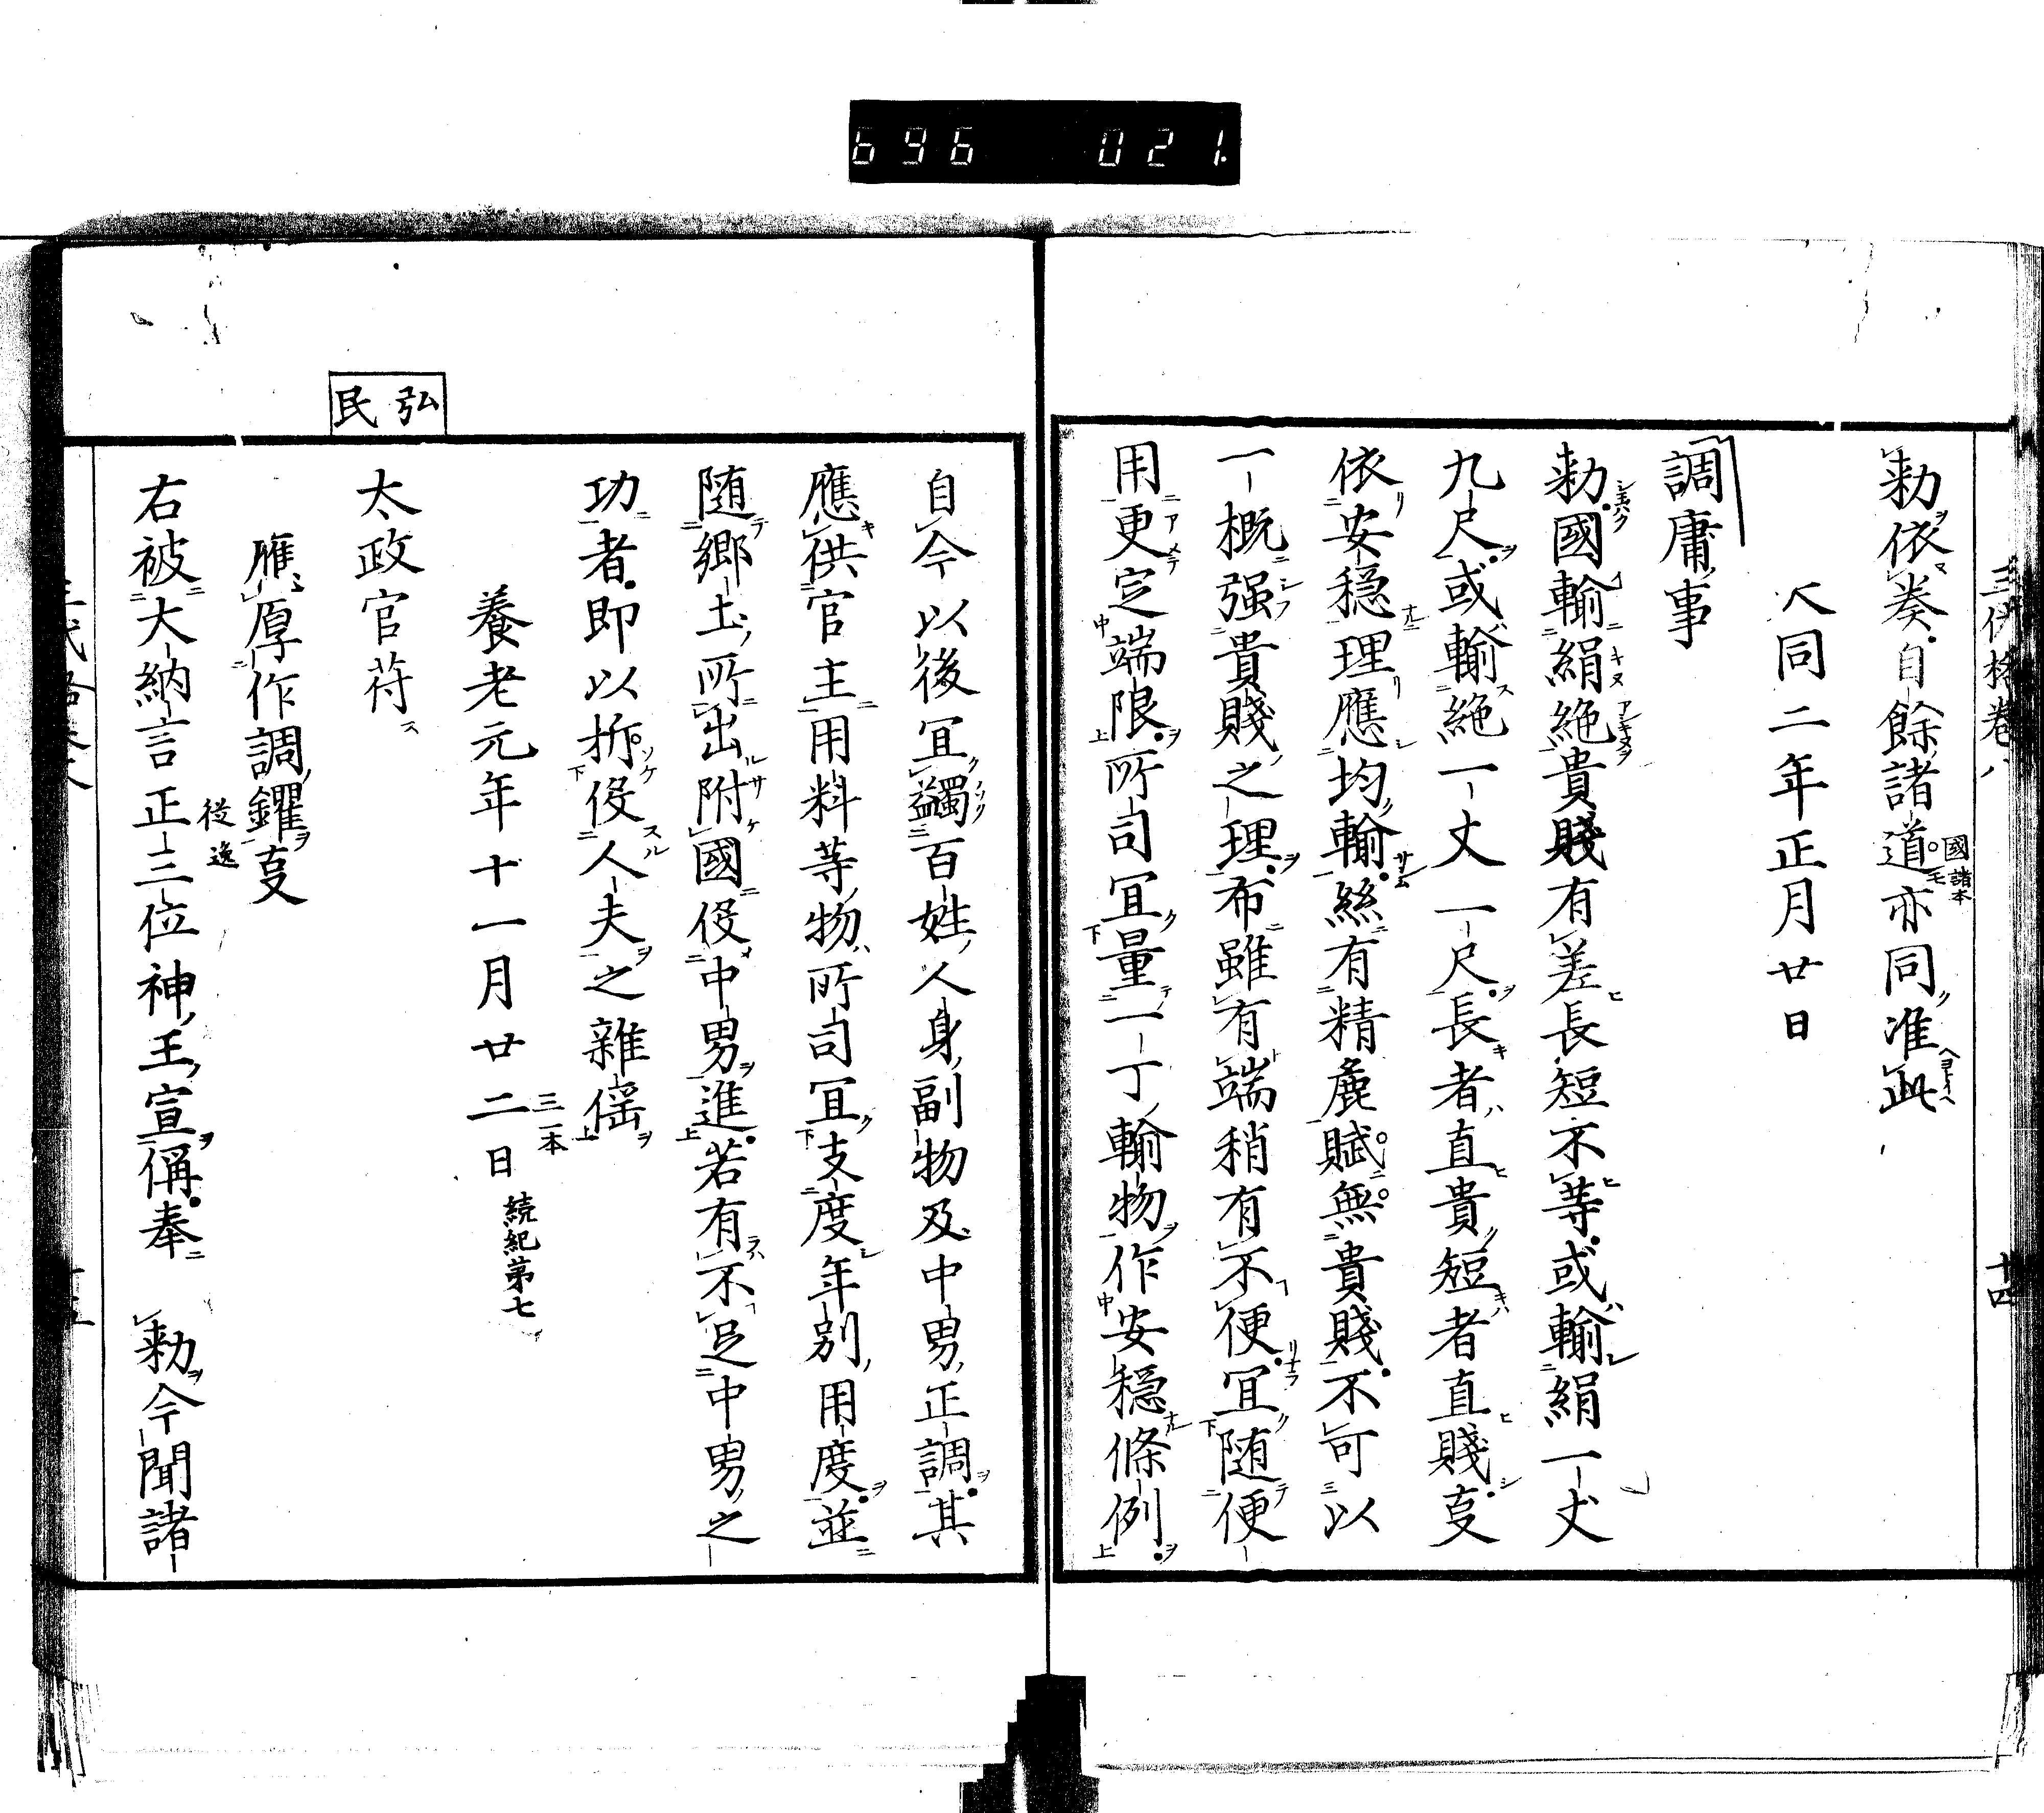 696 021.
三代格卷八 十四
勅依奏自餘諸道亦同准此
國諸本
大同二年正月廿日
調庸事
勅國輸絹絁貴賤有差長短不等或輸絹一丈
九尺或輸絁一丈一尺長者直貴短者直賤㕝
依安穏理應均輸絲有精麁賦無貴賤不可以
一概强貴賤之理布雖有端稍有不便宜随便
用更定端限所司宜量一丁輸物作安穏條例
自今以後宜蠲百姓人身副物及中男正調其
應供官主用料等物所司宜支度年別用度並
随郷土所出附國役中男進若有不足中男之
功者即以折役人夫之雜徭
養老元年十一月廿二日 続紀第七
三一本
弘民
太政官苻
應厚作調钁㕝
右被大納言正三位神王宣偁奉 勅今聞諸
從逸